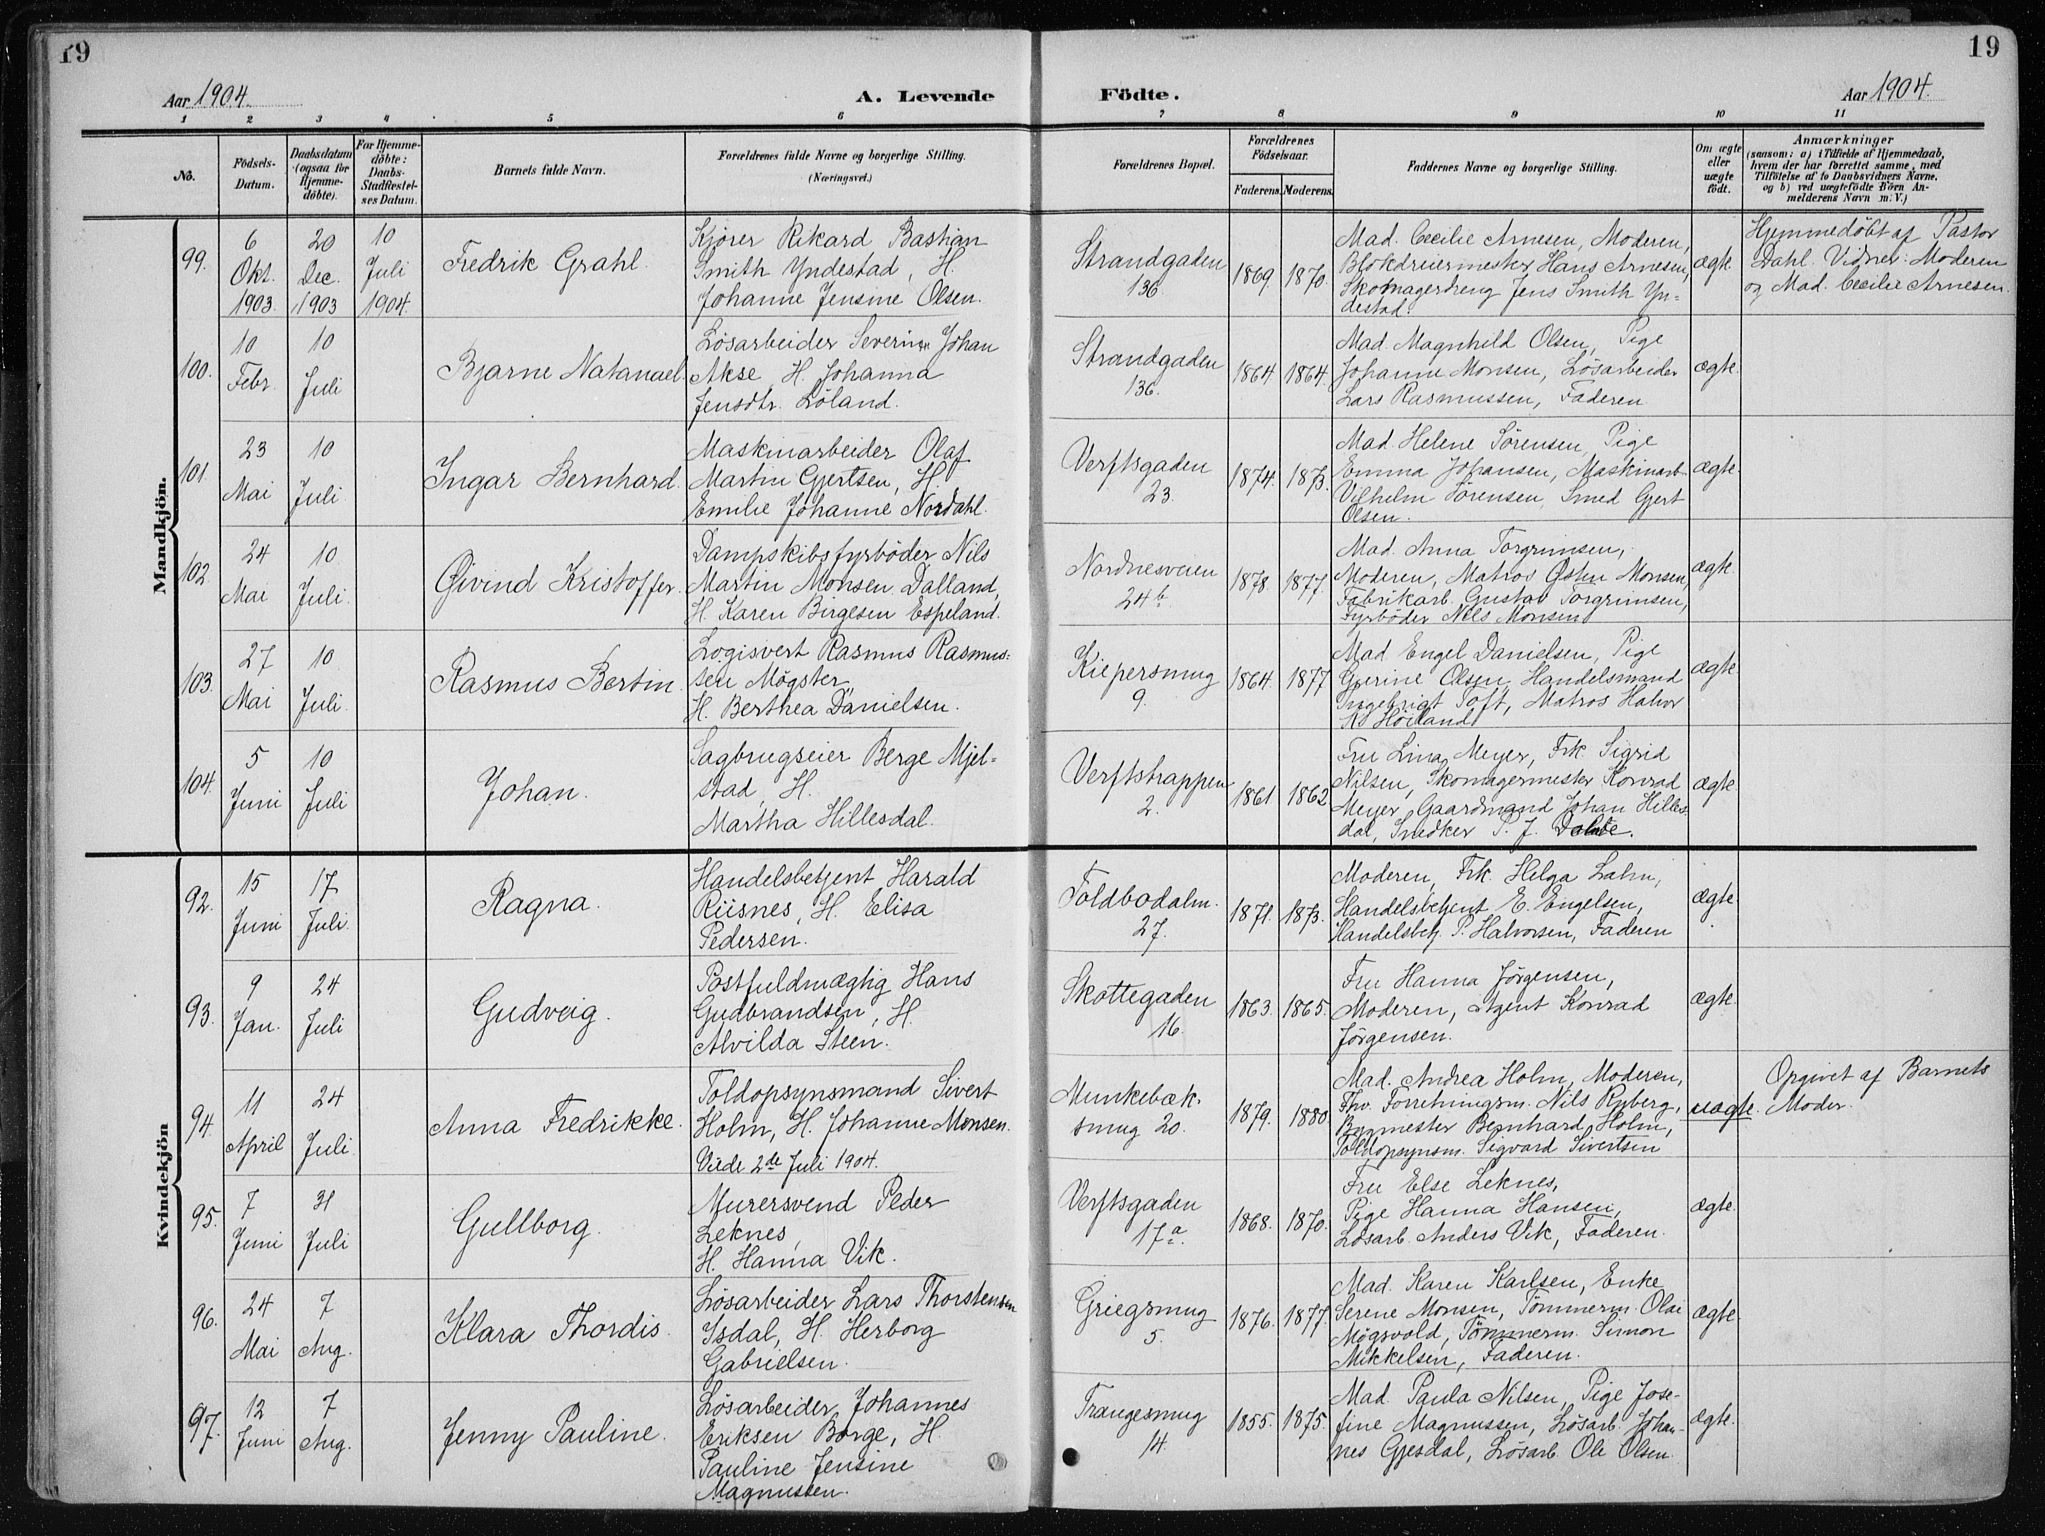 19
19
Aar 1904.
A. Levende
Födte.
Aar 1904.
1 2 3 4 5 6 7 8 9 10 11
No.
Födsels-Datum.
Daabsdatum (ogsaa for Hjemme-döbte).
For Hjemme-döbte: Daabs-Stadfæstel-ses Datum.
Barnets fulde Navn.
Forældrenes fulde Navne og borgerlige Stilling.
(Næringsvei.)
Forældrenes Bopæl.
Forældrenes Födselsaar.
Faderens. Moderens.
Faddernes Navne og borgerlige Stilling.
Om ægte eller uægte födt.
Anmærkninger
(saasom: a) i Tilfælde af Hjemmedaab,
hvem der har forrettet samme, med
Tilföielse af to Daabsvidners Navne,
og b) ved uægtefödte Börn An-
melderens Navn m. V.)
Mandkjön.
99.
6 Okt. 1903.
20 Dec. 1903
10 Juli 1904.
Fredrik Grahl.
Kjører Rikard Bastian
Smith Yndestad, H.
Johanne Jensine Olsen.
Strandgaden
136.
1869. 1870.
Mad. Cecilie Arnesen, Moderen,
Blokdreiermester Hans Arnesen,
Skomagerdreng Jens Smith Yn-
destad.
ægte.
Hjemmedøbt af Pastor
Dahl. Vidner: Moderen
og Mad. Cecilie Arnesen.
100.
10 Febr.
10 Juli
Bjarne Natanael.
Løsarbeider Severin Johan
Akse, H. Johanna
Jensdtr. Løland.
Strandgaden
136.
1864. 1864.
Mad. Magnhild Olsen, Pige
Johanne Monsen, Løsarbeider
Lars Rasmussen, Faderen
ægte.
101.
23 Mai
10 Juli.
Ingar Bernhard.
Maskinarbeider Olaf
Martin Gjertsen, H.
Emilie Johanne Nordahl.
Verftsgaden
23.
1874. 1873.
Mad. Helene Sørensen, Pige
Emma Johansen, Maskinarb.
Vilhelm Sørensen, Smed Gjert
Olsen.
ægte.
102.
24 Mai
10 Juli.
Øivind Kristoffer.
Dampskibsfyrbøder Nils
Martin Monsen Dalland,
H. Karen Birgesen Espeland.
Nordnesveien
24b.
1878. 1877.
Mad. Anna Torgrimsen,
Moderen, Matros Østen Monsen,
Fabrikarb. Gustav Torgrimsen,
Fyrbøder Nils Monsen
ægte.
103.
27 Mai
10 Juli.
Rasmus Bertin.
Logisvert Rasmus Rasmus-
sen Møgster,
H. Berthea Danielsen.
Kiepersmug
9.
1864. 1877
Mad Engel Danielsen, Pige
Gjerine Olsen, Handelsmand
Ingebrigt Toft, Matros Halvor
K. Høiland
ægte.
104.
5 Juni
10 Juli
Johan.
Sagbrugseier Berge Mjel-
stad, H.
Martha Hillesdal.
Verftstrappen
2.
1861 1862
Fru Lina Meyer, Frk Sigrid
Nilsen, Skomagermester Konrad
Meyer, Gaardmand Johan Hilles-
dal, Snedker P. J.
ægte.
Kvindekjön
92.
15 Juni
17 Juli.
Ragna.
Handelsbetjent Harald
Riisnes, H. Elisa
Pedersen.
Toldbodalm.
27.
1871. 1873.
Moderen, Frk. Helga Lahn,
Handelsbetjent E. Engelsen,
Handelsbetj. P. Halvorsen, Faderen
ægte.
93.
9 Jan.
24 Juli
Gudveig.
Postfuldmægtig Hans
Gudbrandsen, H.
Alvilda Steen.
Skottegaden
16.
1863. 1865.
Fru Hanna Jørgensen,
Moderen, Agent Konrad
Jørgensen.
ægte.
94.
11 April
24 Juli.
Anna Fredrikke.
Toldopsynsmand Sivert
Holm, H. Johanne Monsen.
Viede 2de Juli 1904.
Munkebæk-
smug 20.
1879. 1880.
Mad. Andrea Holm, Moderen,
Fhv. Forretningsm. Nils Ryberg,
Bygmester Bernhard Holm,
Toldopsynsm. Sigvard Sivertsen
uægte.
Opgivet af Barnets
Moder.
95.
7 Juni
31 Juli
Gullborg.
Murersvend Peder
Leknes,
H. Hanna Vik.
Verftsgaden
17a.
1868. 1870.
Fru Else Leknes,
Pige Hanna Hansen,
Løsarb. Anders Vik, Faderen.
ægte.
96.
24 Mai
7 Aug.
Klara Thordis.
Løsarbeider Lars Thorstensen
Isdal, H. Herborg
Gabrielsen.
Griegsmug
5.
1876. 1877.
Mad. Karen Karlsen, Enke
Serene Monsen, Tømmerm. Olai
Møgsvold, Tømmerm. Simon
Mikkelsen, Faderen.
ægte.
97.
12 Juni
7 Aug.
Jenny Pauline.
Løsarbeider Johannes
Eriksen Borge, H.
Pauline Jensine
Magnussen.
Trangesmug
14.
1855. 1875.
Mad. Paula Nilsen, Pige Jose-
fine Magnussen, Løsarb. Johan-
nes Gjesdal, Løsarb. Ole Olsen.
ægte.